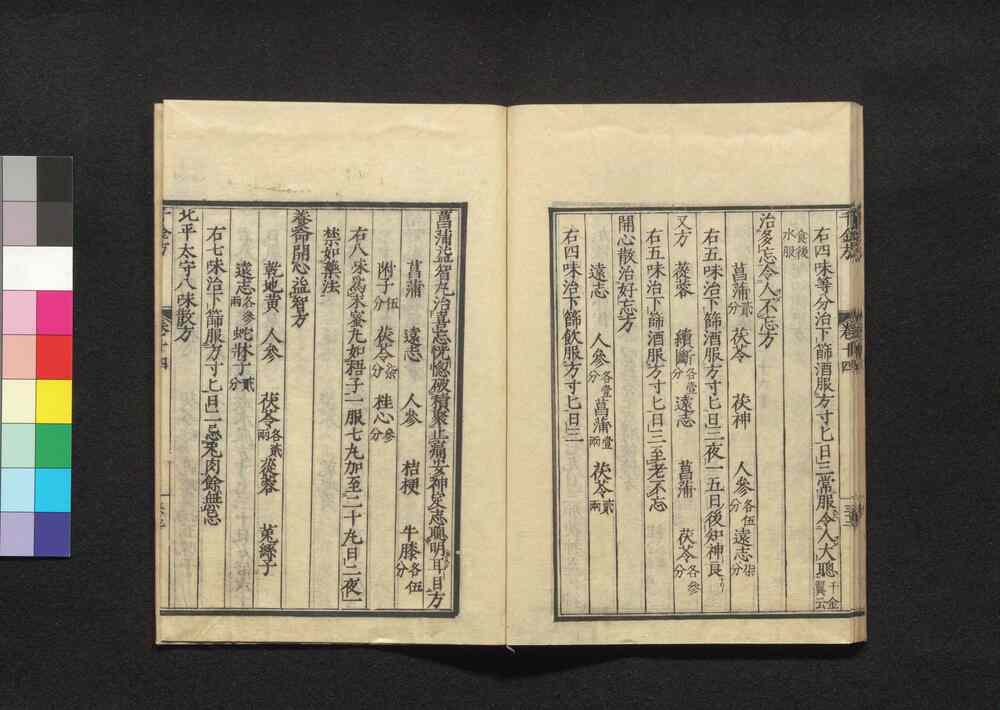 右四味等分治下篩酒服方寸匕日三常服令人大聰千金翼云
食後水服
治多忘令人不忘方
菖蒲貳分 茯苓 茯神 人參各伍分 遠志柒分
右五味治下篩酒服方寸匕日三夜一五日後知神良
又方 蓯蓉 續斷各壹分 遠志 菖蒲 茯苓各參分
右五味治下篩酒服方寸匕日三至老不忘
開心散治好忘方
遠志 人參各壹分 菖蒲壹兩 茯苓貳兩
右四味治下篩飲服方寸匕日三
菖蒲益智丸治喜忘恍惚破積聚止痛安神定志聰明耳目方
菖蒲 遠志 人參 桔梗 牛膝各伍分
附子伍分 茯苓柒分 桂心參分
右八味爲末蜜丸如梧子一服七丸加至二十丸日二夜一
禁如藥法
養命開心益智方
乾地黄 人參 茯苓各貳兩 蓯蓉 菟絲子
遠志各參兩 蛇牀子貳分
右七味治下篩服方寸匕日二忌兔肉餘無忌
北平太守八味散方